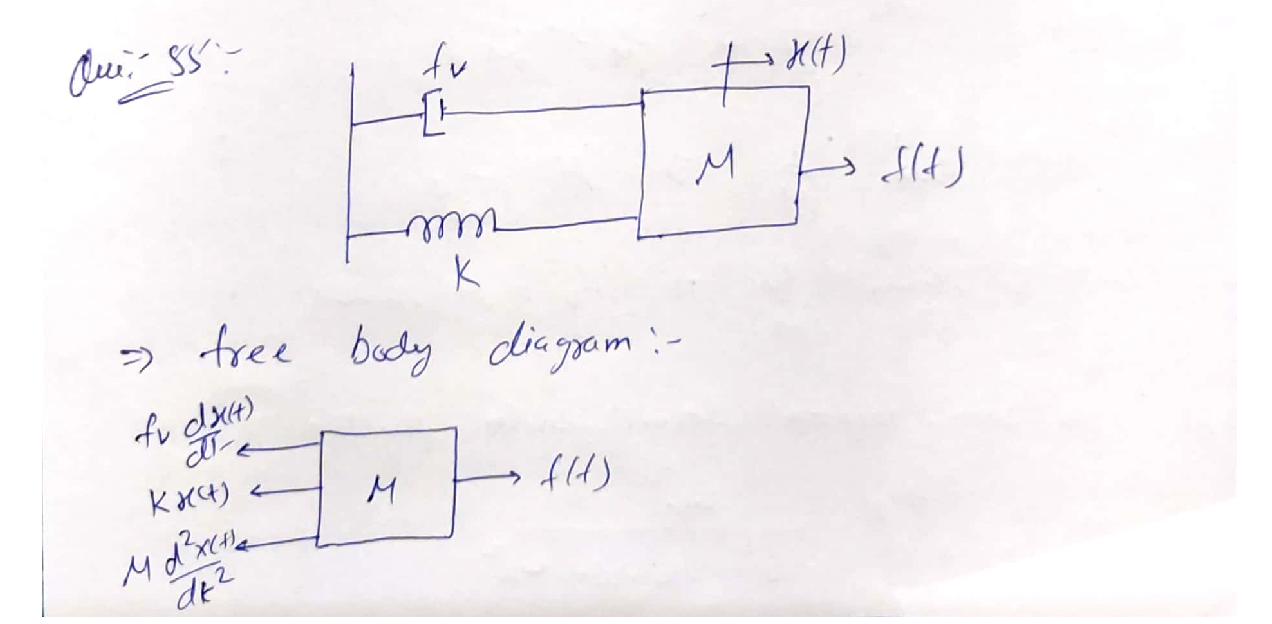 Que:- 55:-
fv
x(t)
M
f(t)
K
⇒ free body diagram:-
fv dx(t)/dt
Kx(t)
M
f(t)
M d²x(t)/dt²